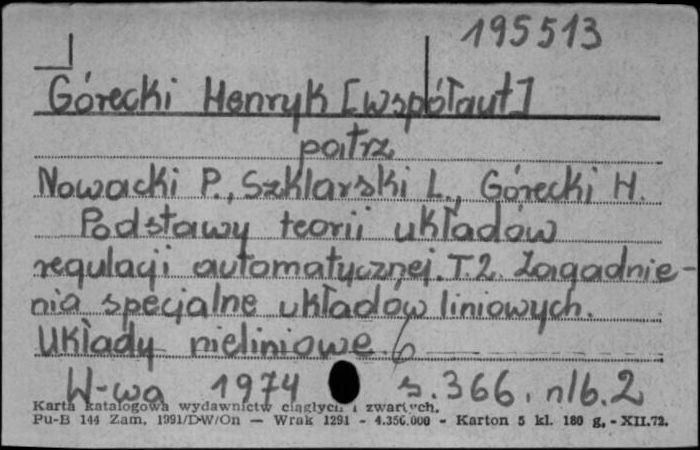 195513
Górecki Henryk [współaut]
patrz
Nowacki P., Szklarski L., Górecki H.
Podstawy teorii układów
regulacji automatycznej. T. 2. Zagadnie-
nia specjalne układów liniowych.
Układy nieliniowe.
W-wa 1974 s. 366, nlb. 2
Karta katalogowa wydawnictw ciągłych i zwartych.
Pu-B 144 Zam. 1991/D-W/On — Wrak 1291 - 4.356.000 - Karton 5 kl. 180 g. - XII.72.